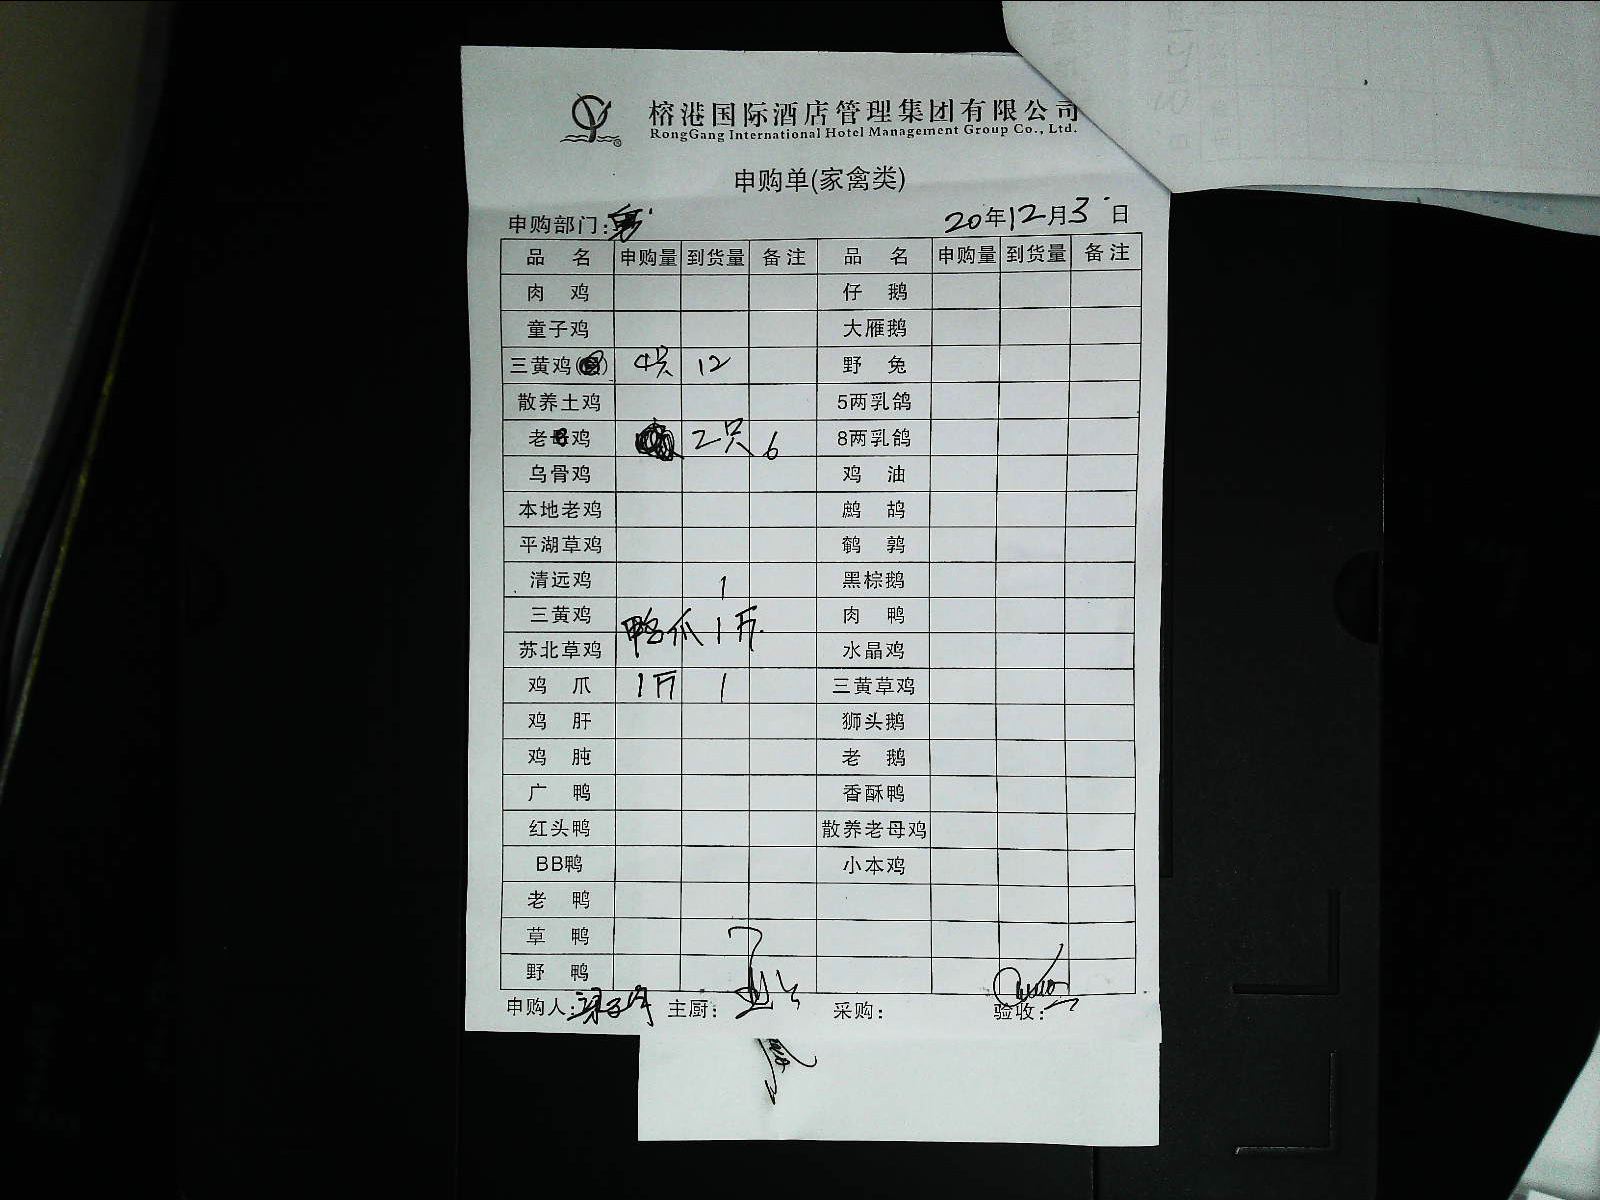 榕港国际酒店管理集团有限公司
RongGang International Hotel Management Group Co., Ltd.
申购单(家禽类)
申购部门: 20年12月3日
品名 申购量 到货量 备注 品名 申购量 到货量 备注
肉鸡 仔鹅
童子鸡 大雁鹅
三黄鸡( ) 4只 12 野兔
散养土鸡 5两乳鸽
老母鸡 2只 6 8两乳鸽
乌骨鸡 鸡油
本地老鸡 鹧鸪
平湖草鸡 鹌鹑
清远鸡 1 黑棕鹅
三黄鸡 鸭爪 1斤 肉鸭
苏北草鸡 水晶鸡
鸡爪 1斤 1 三黄草鸡
鸡肝 狮头鹅
鸡肫 老鹅
广鸭 香酥鸭
红头鸭 散养老母鸡
BB鸭 小本鸡
老鸭
草鸭
野鸭
申购人: 主厨: 采购: 验收: